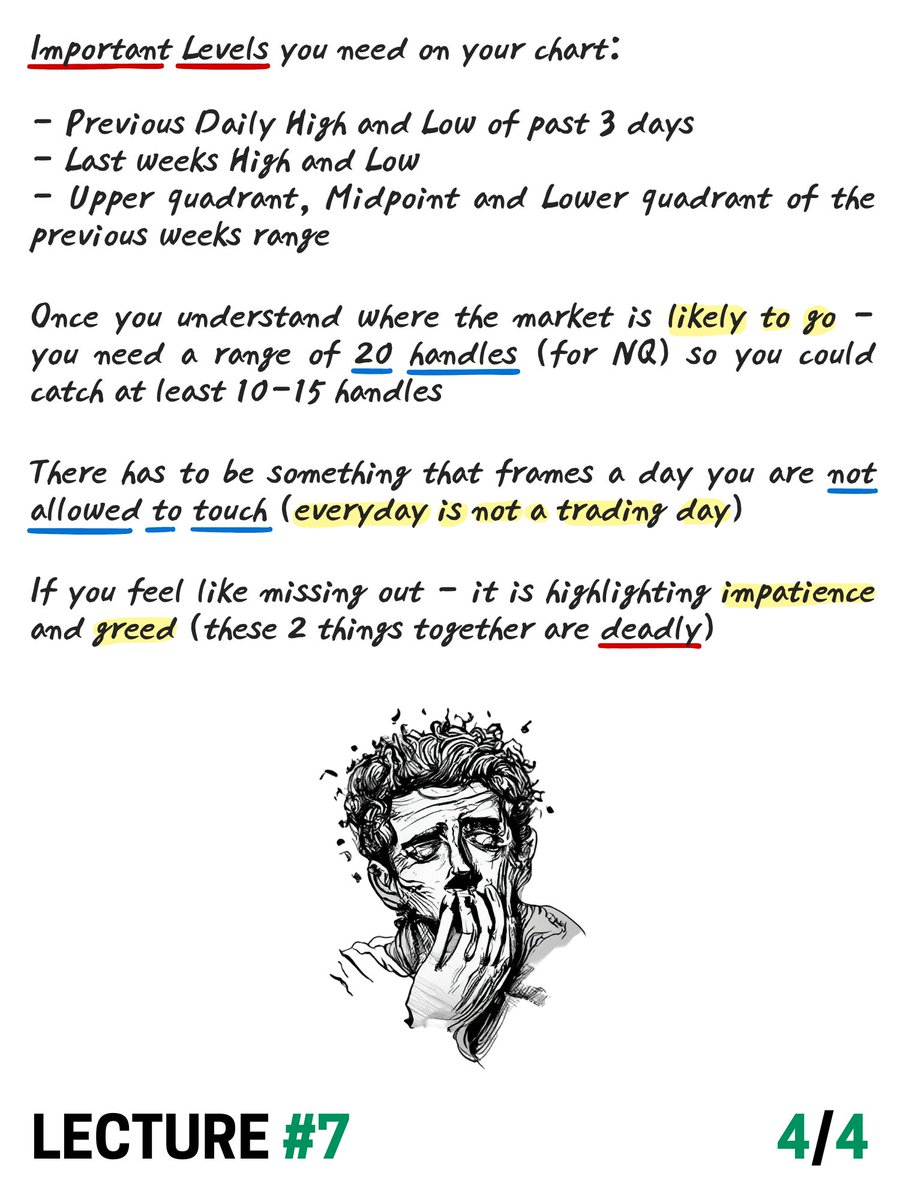 Important Levels you need on your chart:
- Previous Daily High and Low of past 3 days
- Last weeks High and Low
- Upper quadrant, Midpoint and Lower quadrant of the
previous weeks range
Once you understand where the market is likely to go -
you need a range of 20 handles (for NQ) so you could
catch at least 10-15 handles
There has to be something that frames a day you are not
allowed to touch (everyday is not a trading day)
If you feel like missing out - it is highlighting impatience
and greed (these 2 things together are deadly)
LECTURE #7
4/4